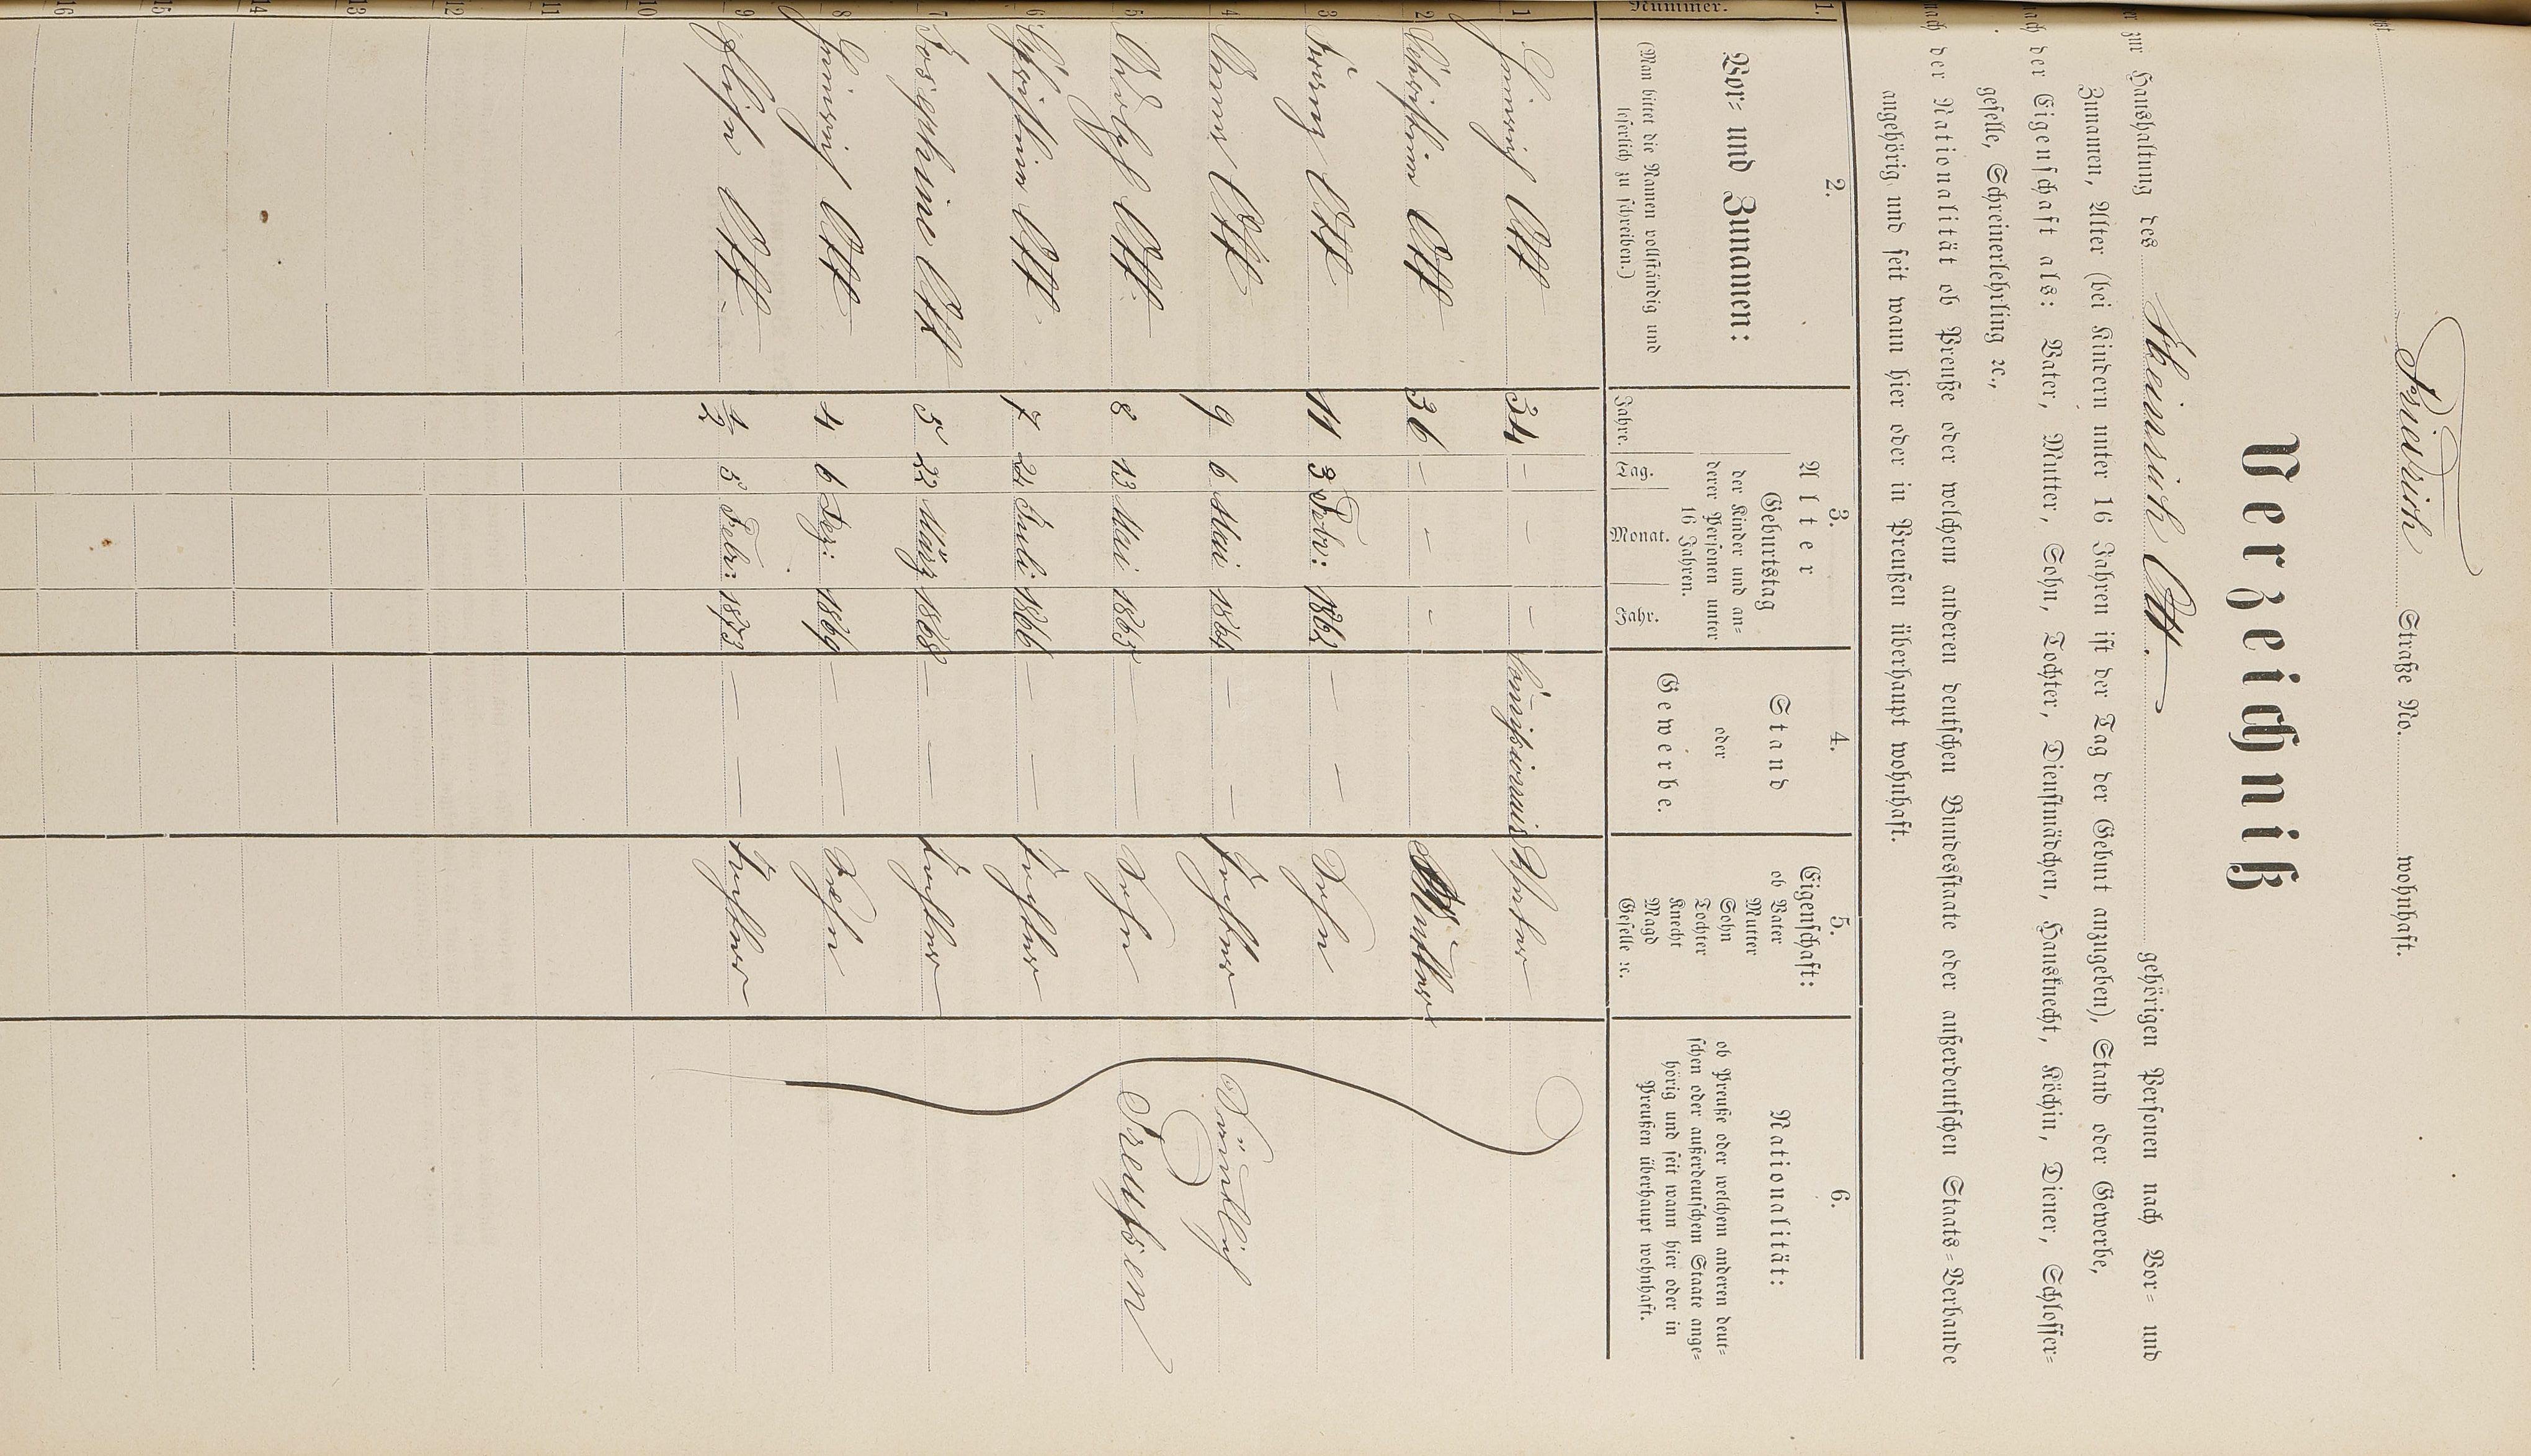 Friedrich Straße No. wohnhaft.
Verzeichniß
zur Haushaltung des Heinrich Ott. gehörigen Personen nach Vor- und
Zunamen, Alter (bei Kindern unter 16 Jahren ist der Tag der Geburt anzugeben), Stand oder Gewerbe,
nach der Eigenschaft als: Vater, Mutter, Sohn, Tochter, Dienstmädchen, Hausknecht, Köchin, Diener, Schlosser-
geselle, Schreinerlehrling ꝛc.,
nach der Nationalität ob Preuße oder welchem anderen deutschen Bundesstaate oder außerdeutschen Staats-Verbande
angehörig und seit wann hier oder in Preußen überhaupt wohnhaft.
1. 2. 3. 4. 5. 6.
Nummer.
Vor- und Zunamen:
(Man bittet die Namen vollständig und
leserlich zu schreiben.)
Alter
Jahre.
Geburtstag
der Kinder und an-
derer Personen unter
16 Jahren.
Tag. Monat. Jahr.
Stand
oder
Gewerbe.
Eigenschaft:
ob Vater
Mutter
Sohn
Tochter
Knecht
Magd
Geselle ꝛc.
Nationalität:
ob Preuße oder welchen anderen deut-
schen oder außerdeutschem Staate ange-
hörig und seit wann hier oder in
Preußen überhaupt wohnhaft.
1 Heinrich Ott 34 - - - Vater
2 Christina Ott 36 - - - Mutter
3 Franz Ott 11 3 Febr: 1862 - - Sohn
4 Anna Ott 9 6 Mai 1864 - - Tochter
5 Adolph Ott. 8 13 Mai 1865 - - Sohn
6 Christina Ott 7 24 Juli 1866 - - Tochter
7 Josephine Ott 5 22 März 1868 - - Tochter
8 Heinrich Ott 4 6 Dez: 1869 - - Sohn
9 Elise Ott. 1/2 5 Febr: 1873 - - Tochter
Sämtlich
Preußen
10
11
12
13
14
15
16